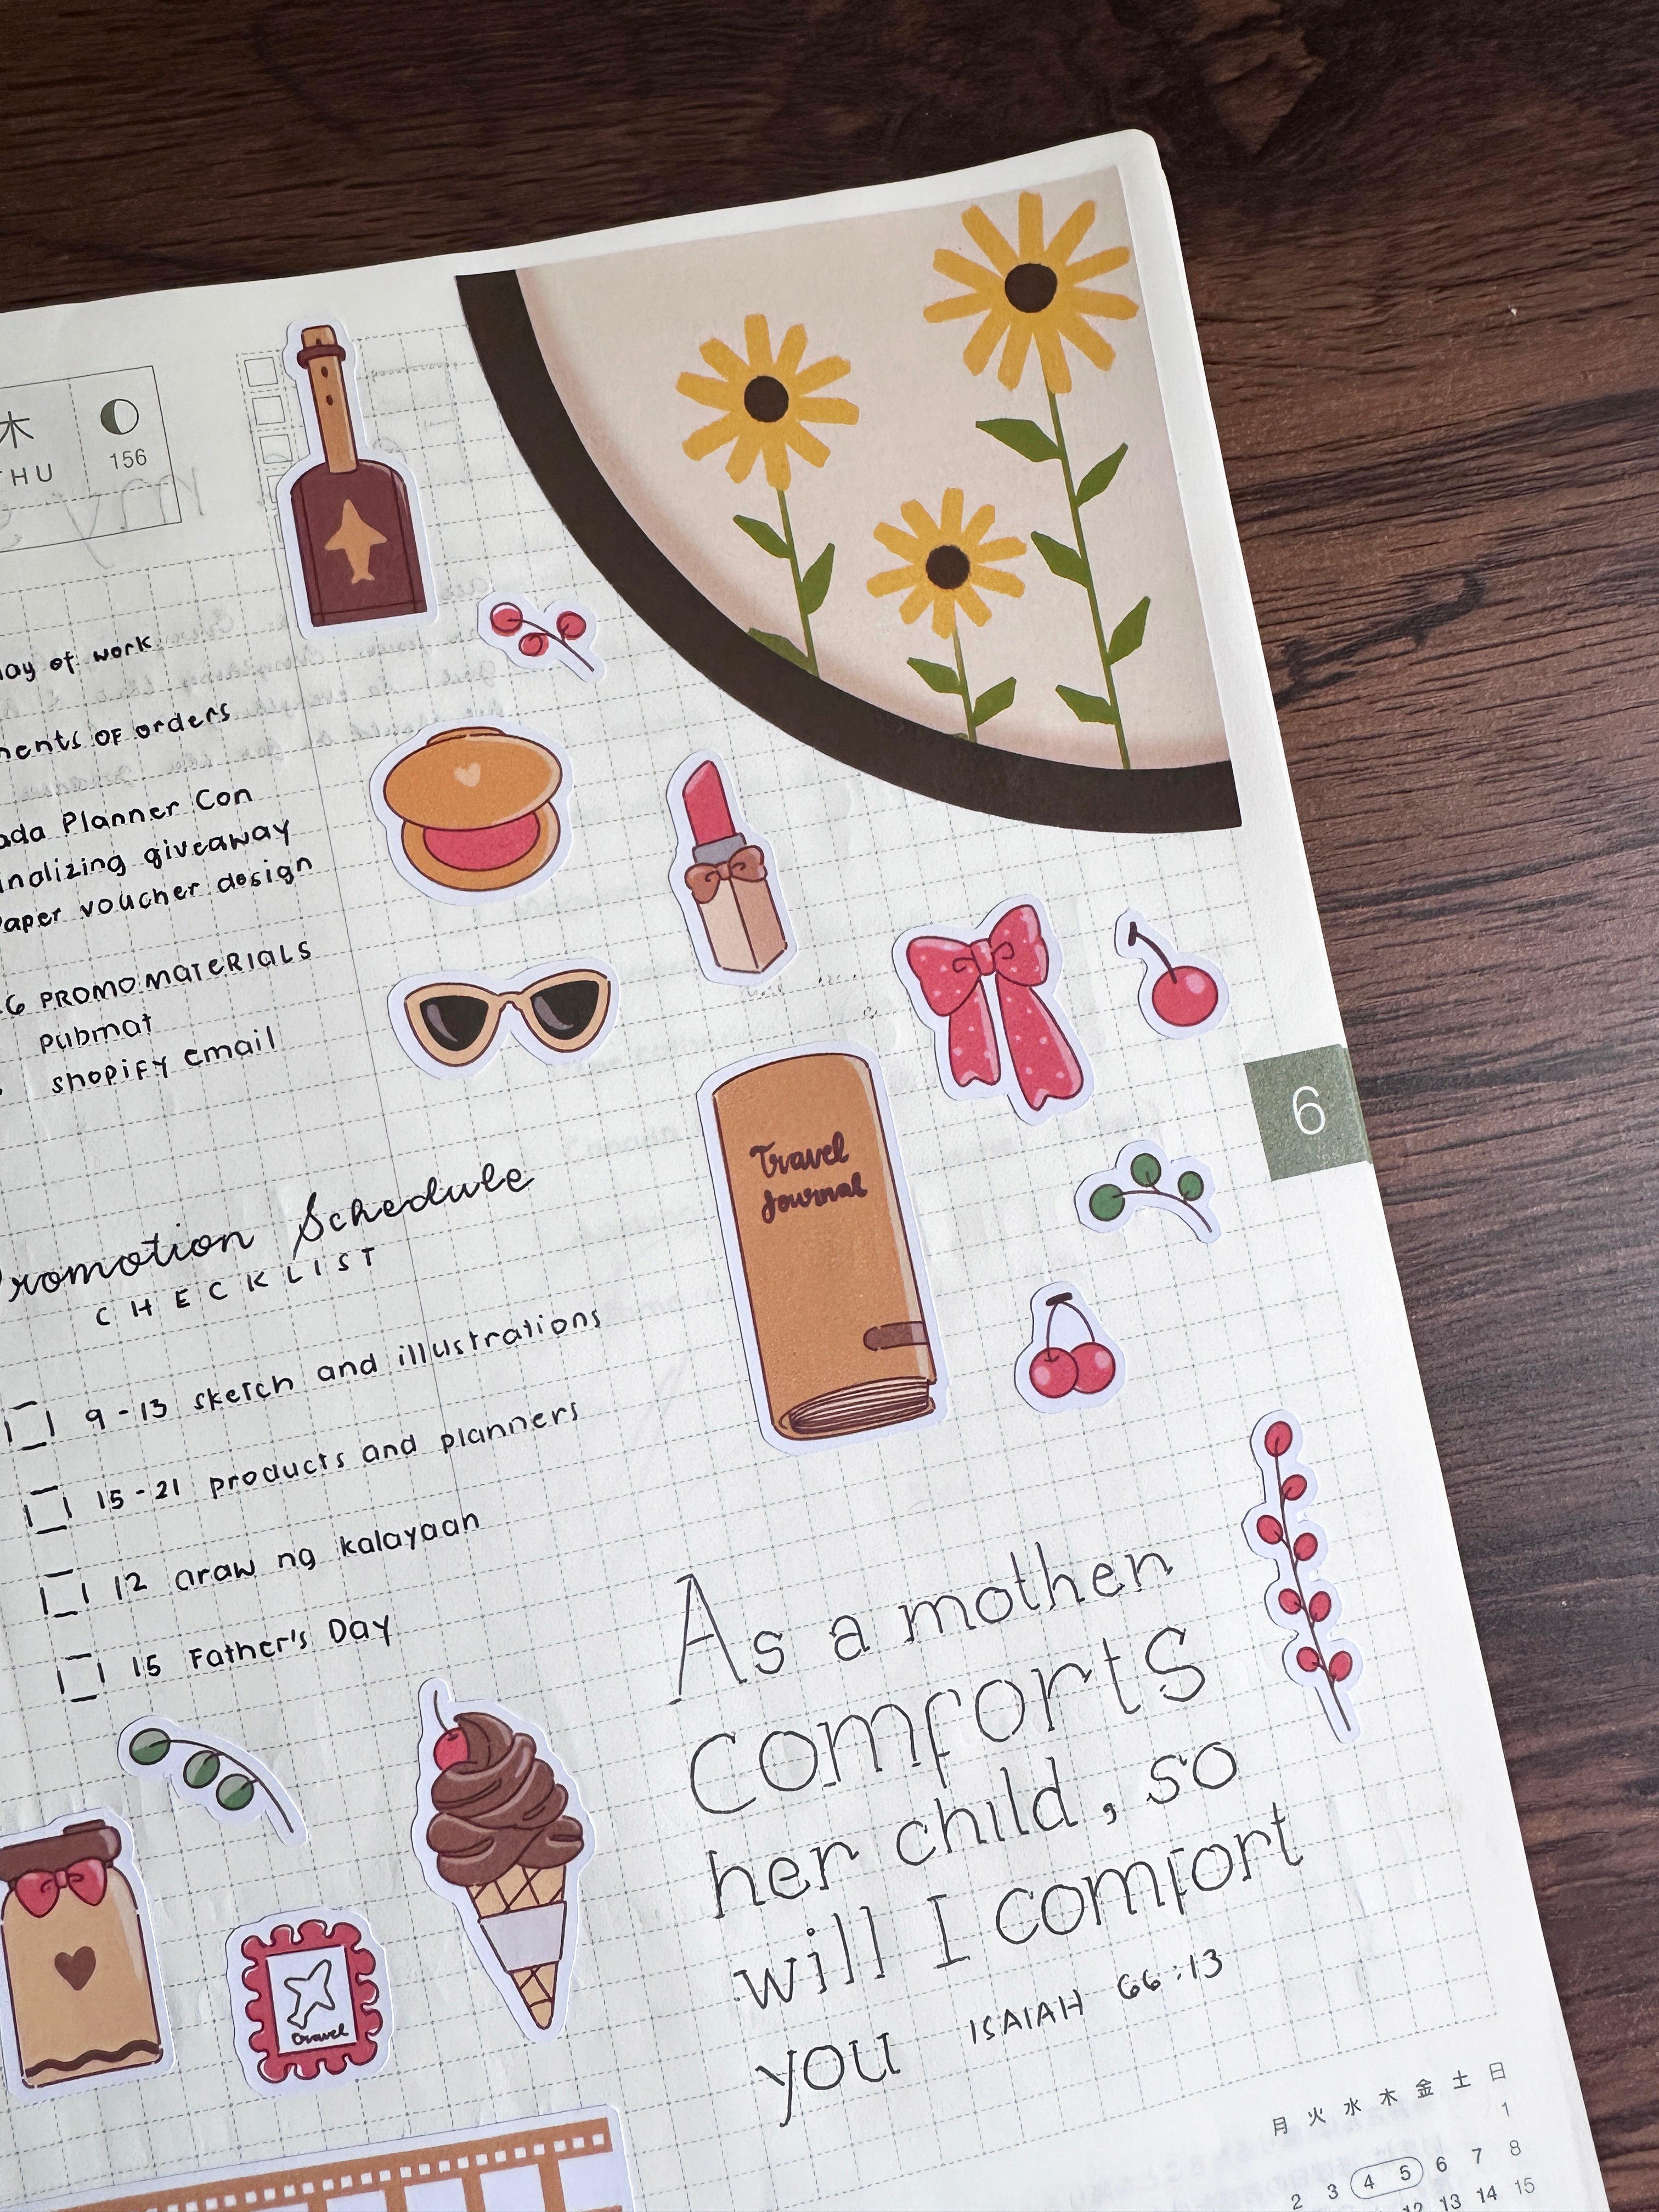 木
THU
156
ay of work
ments OF orders
ada Planner Con
inalizing giveaway
Paper voucher design
6 PROMO MATERIALS
pubmat
shopify email
Promotion Schedule
CHECKLIST
9-13 sketch and illustrations
15-21 products and planners
12 araw ng kalayaan
15 Father's Day
Travel
Journal
6
travel
As a mother
comforts
her child, so
will I comfort
you ISAIAH 66:13
月 火 水 木 金 土 日
1
2 3 4 5 6 7 8
12 13 14 15